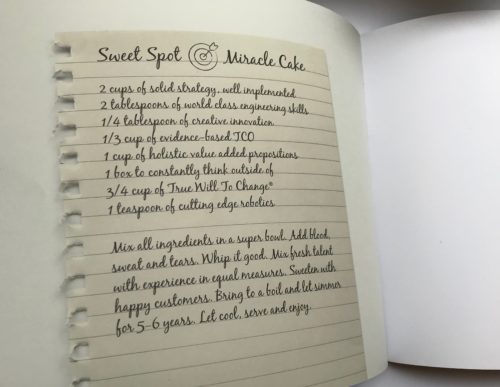 Sweet Spot Miracle Cake
2 cups of solid strategy, well implemented
2 tablespoons of world class engineering skills
1/4 tablespoon of creative innovation
1/3 cup of evidence-based TCO
1 cup of holistic value added propositions
1 box to constantly think outside of
3/4 cup of True Will To Change®
1 teaspoon of cutting edge robotics
Mix all ingredients in a super bowl. Add blood,
sweat and tears. Whip it good. Mix fresh talent
with experience in equal measures. Sweeten with
happy customers. Bring to a boil and let simmer
for 5-6 years. Let cool, serve and enjoy.